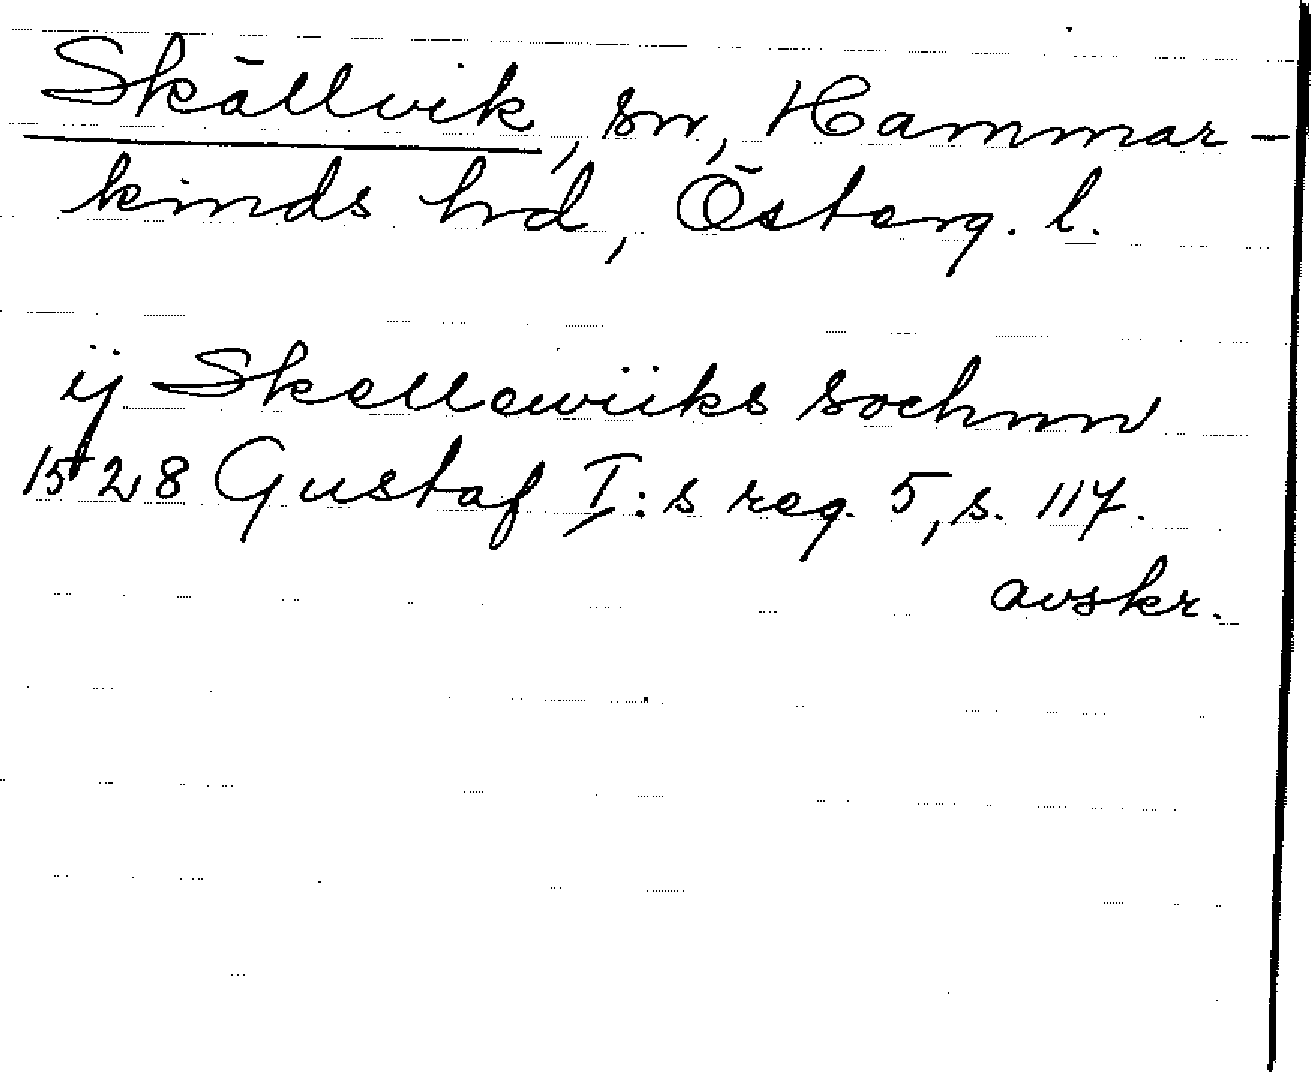 Skällvik, sn, Hammar-
kinds hd, Österg. l.
ij Skellewiiks sochnn
1528 Gustaf I:s reg. 5, s. 117.
avskr.